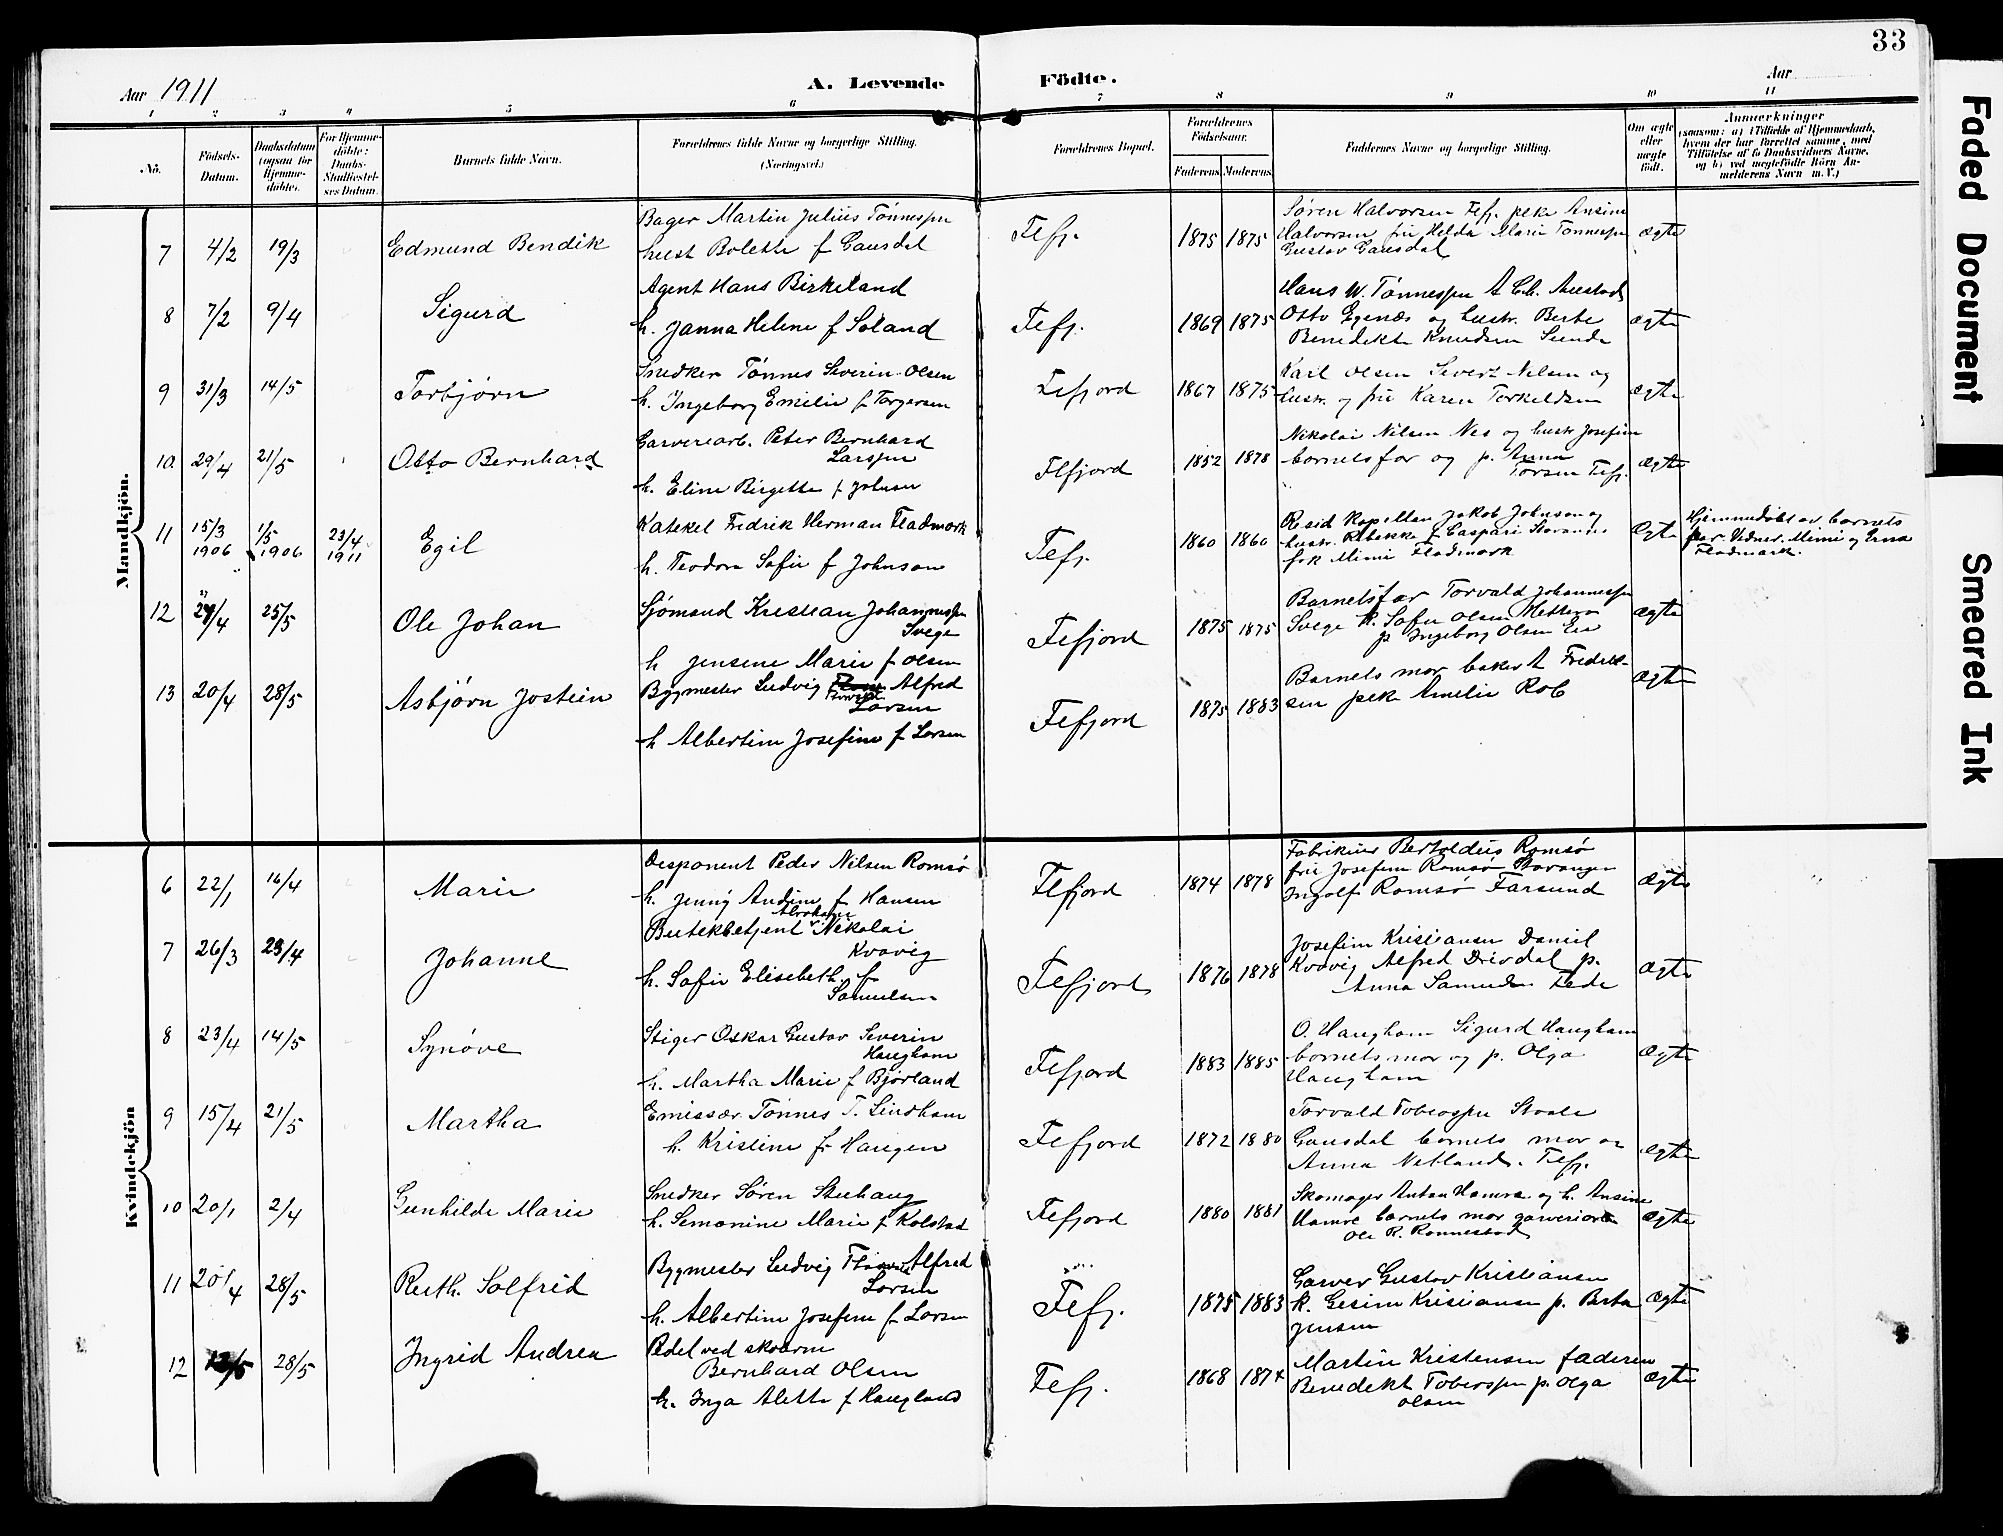 33
Aar 1911
A. Levende Födte.
Aar
1 2 3 4 5 6 7 8 9 10 11
No.
Födsels-Datum.
Daabsdatum (ogsaa for Hjemme-døbte).
For Hjemme-döbte: Daabs-Stadfæstel-ses Datum.
Barnets fulde Navn.
Forældrenes fulde Navne og borgerlige Stilling. (Næringsvei.)
Forældrenes Bopæl.
Forældrenes Födselsaar.
Faderens Moderens
Faddernes Navne og borgerlige Stilling.
Om ægte eller uægte födt.
Anmærkninger
(saasom: a) i Tilfælde af Hjemmedaab, hvem der har forrettet samme, med Tilföielse af to Daabsvidners Navne, og b) ved uægtefödte Börn An-melderens Navn m. V.)
Mandkjön.
7 4/2 19/3 Edmund Bendik
Bager Martin Julius Tönnessen
hust Bolette f Gausdal
Fefj. 1875 1875
Søren Halvorsen Fefj. peke Ansine
Halvorsen fru Helda Marie Tönnessen
Gustav Gausdal
ægte
8 7/2 9/4 Sigurd
Agent Hans Birkeland
h. Janna Helene f Soland
Fefj. 1869 1875
Hans W. Tönnessen A. Ch. Austad
Otto Egenæs og hustr. Berte
Benedikte Knudsen Sunde
ægte
9 31/3 14/5 Torbjørn
Snedker Tönnes Severin Olsen
h. Ingeborg Emilie f Torgersen
Fefjord 1867 1875
Karl Olsen Severt Nilsen og
hustr. og fru Karen Torkeldsen
ægte
10 29/4 21/5 Otto Bernhard
Garverarb. Peter Bernhard
Larssen
h. Eline Birgette f Johnsen
Flefjord 1852 1878
Nikolai Nilsen Nes og hustr Josefine
barnetsfar og p. Anna
Torsen Fefj.
ægte
11 15/3 1906 1/5 1906 23/4 1911 Egil
Kateket Fredrik Herman Fladmark
h. Teodora Sofie f Johnson
Fefj. 1860 1860
Resid Kapellan Jakob Johnson og
hustr. Rebekka f Caspari Stavanger
frk Mimi Fladmark
Ægte
Hjemmedöbt av barnets
far. Vidner. Mimi og Erna
Fladmark.
12 24/4 25/5 Ole Johan
Sjömand Kristian Johannessen
Svege
h Jensene Marie f Olsen
Fefjord 1875 1875
Barnetsfar Torvald Johannessen
Svege h. Sofie Olsen
p Ingeborg Olsen
ægte
13 20/4 28/5 Asbjørn Jostein
Bygmester Ludvig Alfred
Larsen
h Albertine Josefine f Larsen
Fefjord 1875 1883
Barnets mor baker A Fredrik-
sen peke Amelie Rob
ægte
Kvindekjön
6 22/1 16/4 Marie
Disponent Peder Nilsen Romsö
h. Jenny Andine f Hansen
Flefjord 1874 1878
Fabrikeier Bertoldus Romsö
fru Josefine Romsö Stavanger
Ingolf Romsö Farsund
ægte
7 26/3 23/4 Johanne
Abraham
Butikbetjent Nikolai
Kvavig
h. Sofie Elisebeth f
Samuelsen
Fefjord 1876 1878
Josefine Kristiansen Daniel
Kvavig Alfred Drivdal p.
Anna Samuelsen Fede
ægte
8 23/4 14/5 Synöve
Stiger Oskar Gustav Severin
Haugham
h. Martha Marie f Björland
Fefjord 1883 1885
O. Haugham Sigurd Haugham
barnets mor og p. Olga
Haugham
ægte
9 15/4 21/5 Martha
Emissær Tönnes T. Lindham
h. Kristine f Haugen
Fefjord 1872 1880
Torvald Tobiassen Staale
Gausdal barnets mor og
Anna Netland. Flefj.
ægte
10 20/1 2/4 Gunhilde Marie
Snedker Sören Stuhaug
h. Semonine Marie f Kolstad
Fefjord 1880 1881
Skomager Anton Hamre og h. Ansine
Hamre barnets mor garveriarb
Ole R. Ronnestad
ægte
11 20/4 28/5 Ruth. Solfrid
Bygmester Ludvig Alfred
Larsen
h. Albertine Josefine f Larsen
Fefj. 1875 1883
Garver Gustav Kristiansen
h. Gesine Kristiansen p. Berta
Jensen
ægte
12 28/5 Ingrid Andrea
Pedel ved skolerne
Bernhard Olsen
h. Inga Alette f Haugland
Fefj. 1868 1874
Martin Kristensen faderen
Benedikt Tobiassen p. Olga
Olsen
ægte
Faded Document
Smeared Ink